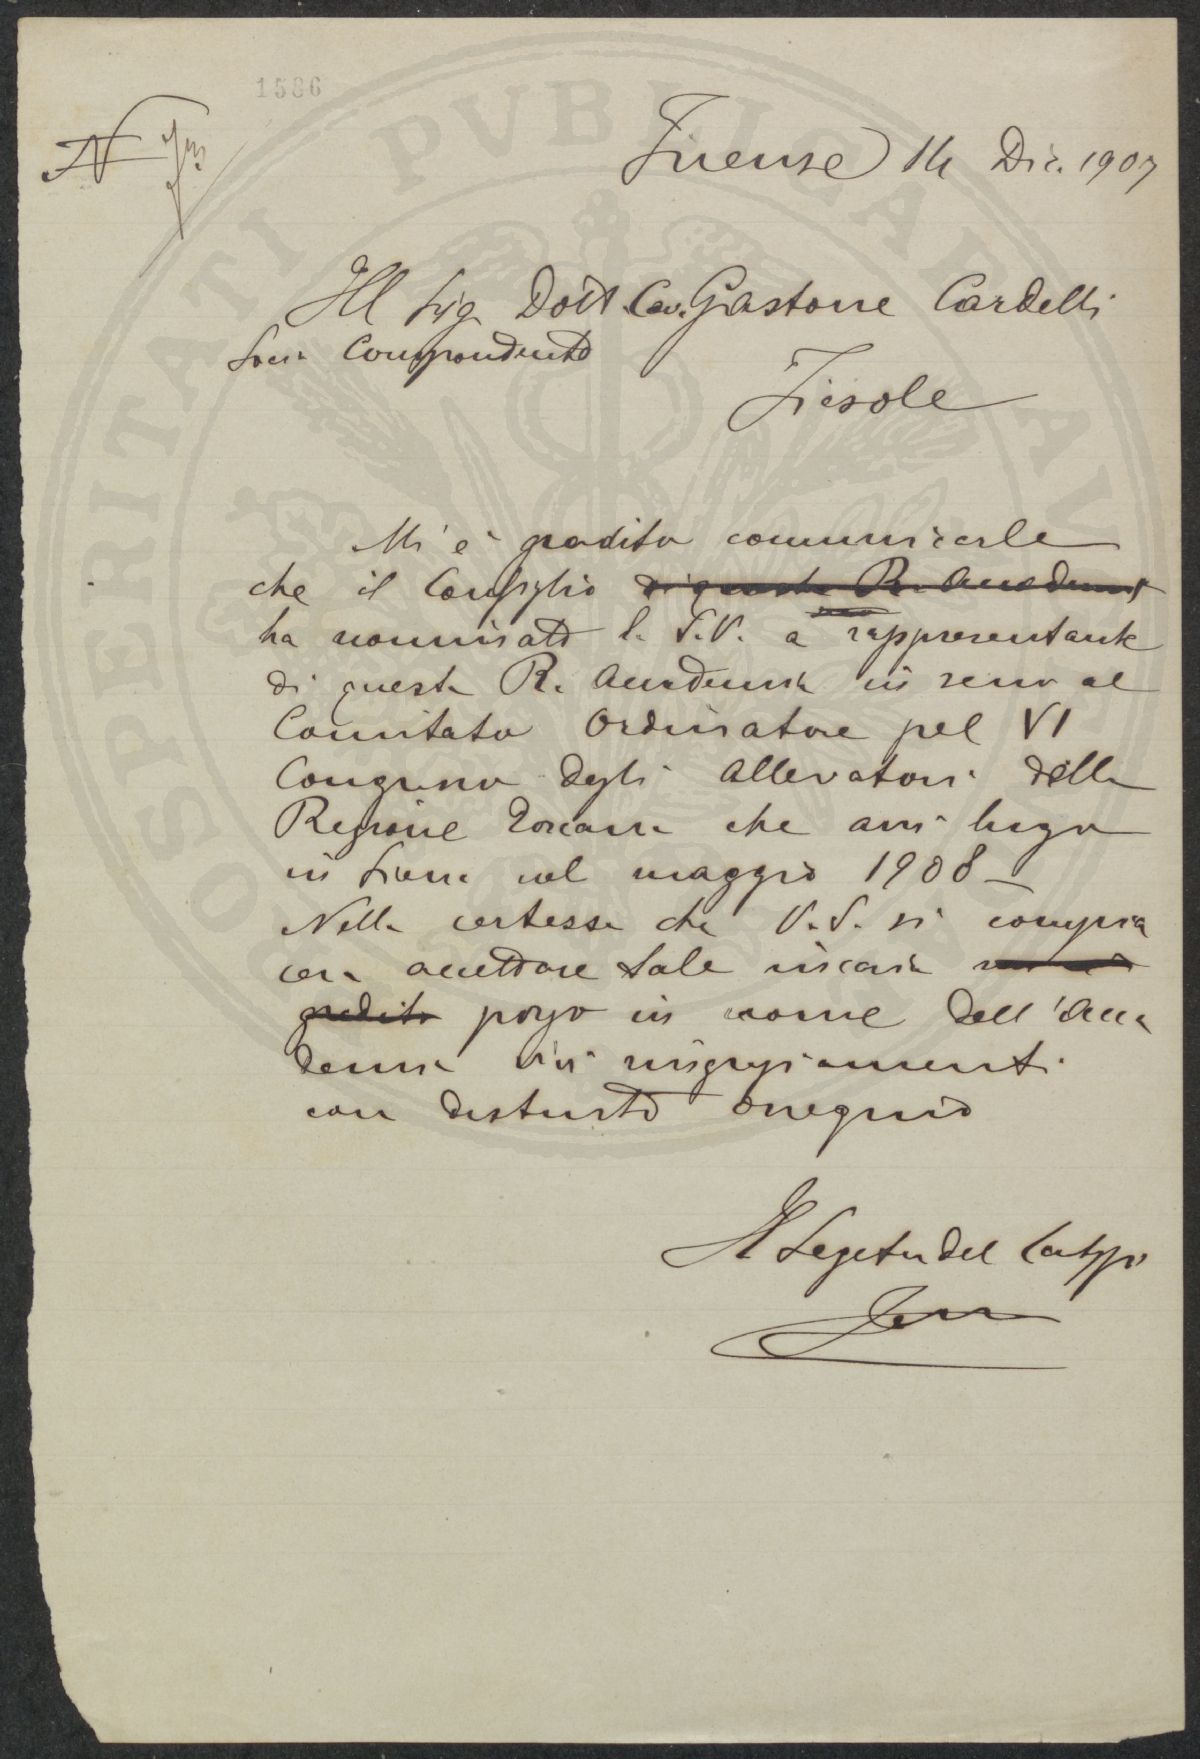 1586
N
Firenze 14 Dic. 1907
Ill Sig Dott. Cav. Gastone Cardelli
Socio Corrispondente
Fiesole
Mi è gradito comunicarle
che il Consiglio di questa R. Accademia
ha nominato la S.V. a rappresentante
di questa R. Accademia in seno al
Comitato Ordinatore pel VI
Congresso degli Allevatori della
Regione Toscana che avrà luogo
in Siena nel maggio 1908 –
Nella certezza che V.S. si compia
cerà accettare tale incarico
gradito porgo in nome dell'Acca
demia vivi ringraziamenti
con distinto ossequio
Il Segret. del Carteggi
PROSPERITATI PVBLICAE AVGENDAE